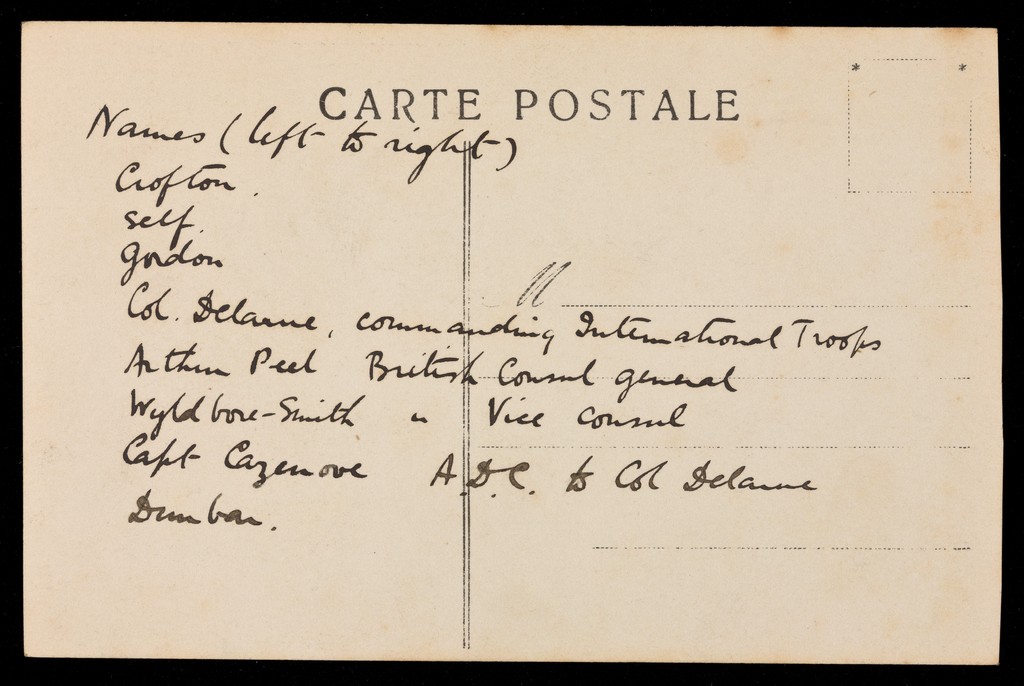 CARTE POSTALE
Names (left to right)
Crofton.
Self.
Gordon
Col. Delarue, commanding International Troops
Arthur Peel British Consul general
Wyldbore-Smith " Vice consul
Capt Cazenove A.D.C. to Col Delarue
Dunbar.